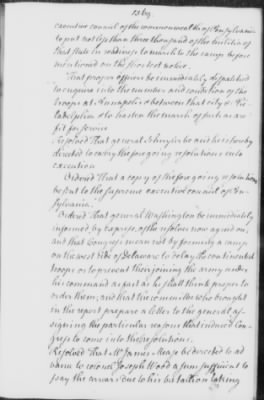 1369
executive council of the commonwealth of Pensylvania
to put not less than three thousand of the militia of
that State in readiness to march to the camp before
mentioned on the shortest notice.
That proper officers be immediately dispatched
to enquire into the number and condition of the
troops at Annapolis & between that city & Phi-
ladelphia & to hasten the march of such as are
fit for service
Resolved That general Schuyler be and he is hereby
directed to carry the foregoing resolutions into
execution
Ordered That a copy of the foregoing resolutions
be sent to the supreme executive council of Pen-
sylvania.
Ordered That general Washington be immediately
informed, by express, of the resolves now agreed on,
and that Congress mean not by forming a camp
on the west side of Delaware to delay the continental
troops or to prevent their joining the army under
his command as fast as he shall think proper to
order them, and that the committee who brought
in the report prepare a letter to the general as-
signing the particular reasons that induced Con-
gress to come into these resolutions.
Resolved That Mr James Mease be directed to ad
vance to colonel Joseph Wood a sum sufficient to
pay the arrears due to his battalion taking